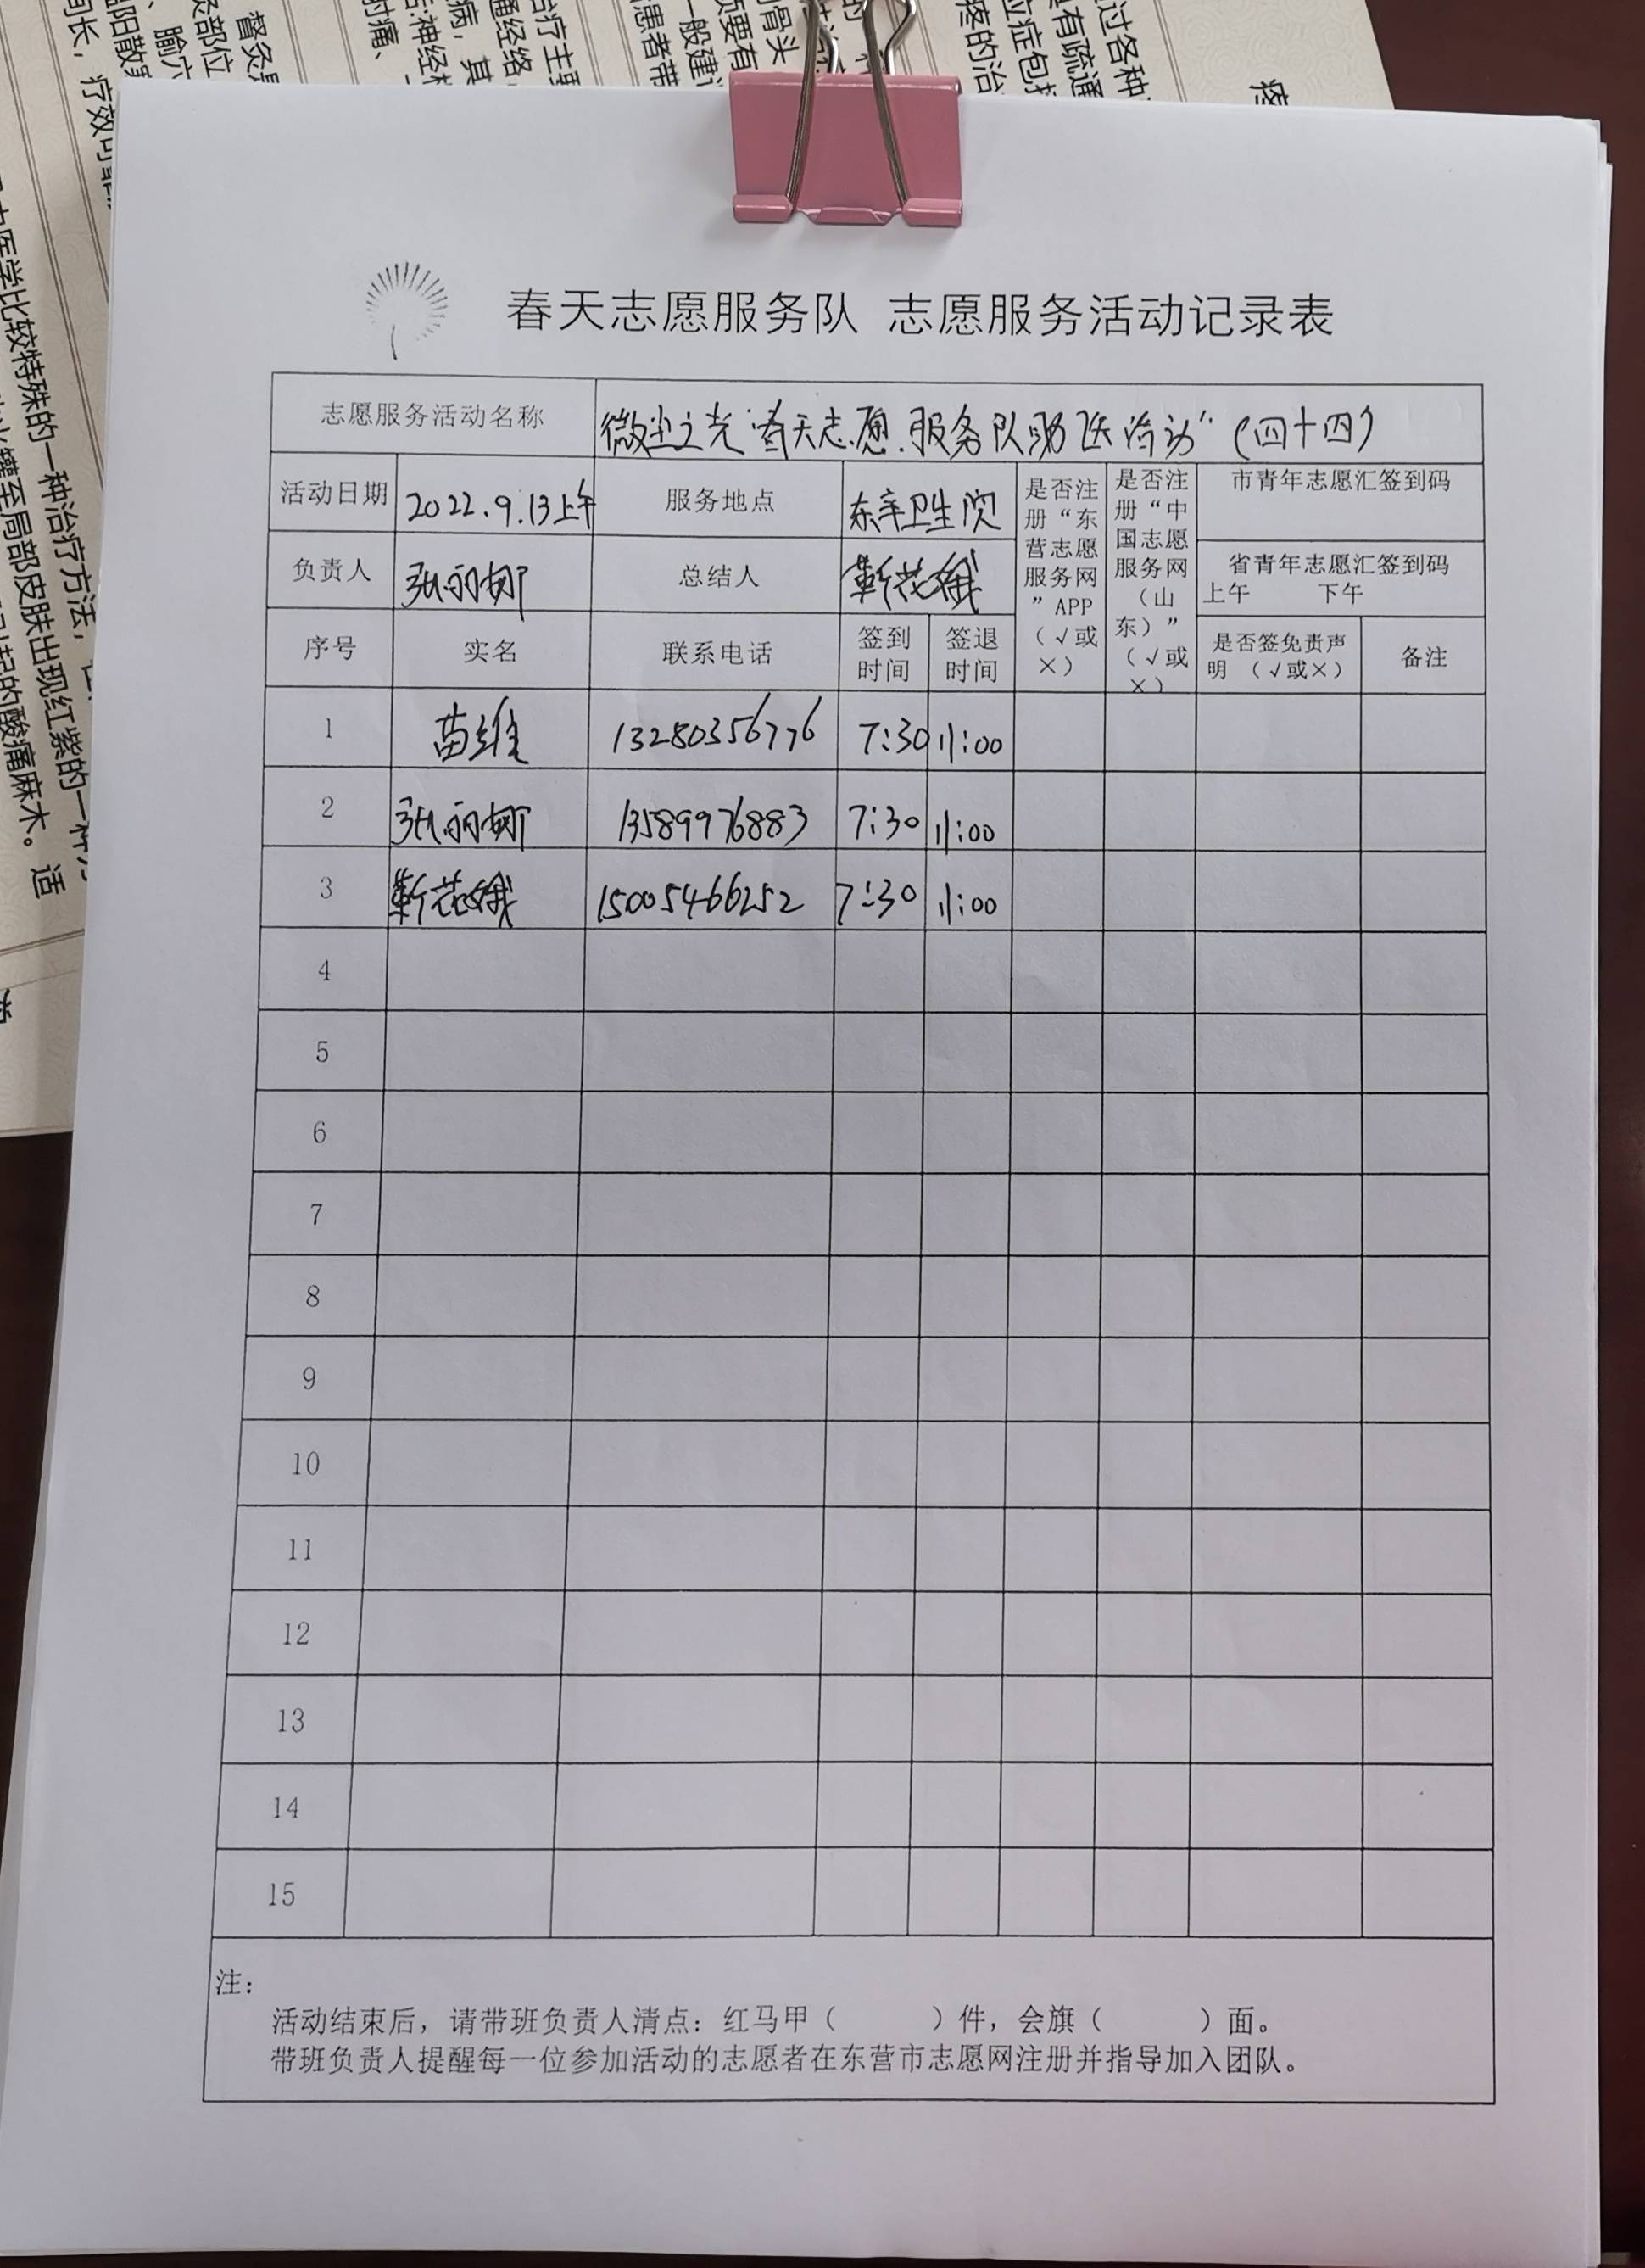 春天志愿服务队 志愿服务活动记录表
志愿服务活动名称 微尘之光“春天志愿服务队助医活动”(四十四)
活动日期 2022.9.13上午 服务地点 东辛卫生院
负责人 张丽娜 总结人 靳花娥
是否注册“东营志愿服务网”APP(√或×)
是否注册“中国志愿服务网(山东)”(√或×)
市青年志愿汇签到码
省青年志愿汇签到码
上午 下午
序号 实名 联系电话 签到时间 签退时间 是否签免责声明 (√或×) 备注
1 苗维 13280356776 7:30 11:00
2 张丽娜 13589976883 7:30 11:00
3 靳花娥 15005466252 7:30 11:00
4
5
6
7
8
9
10
11
12
13
14
15
注:
活动结束后,请带班负责人清点:红马甲( )件,会旗( )面。
带班负责人提醒每一位参加活动的志愿者在东营市志愿网注册并指导加入团队。